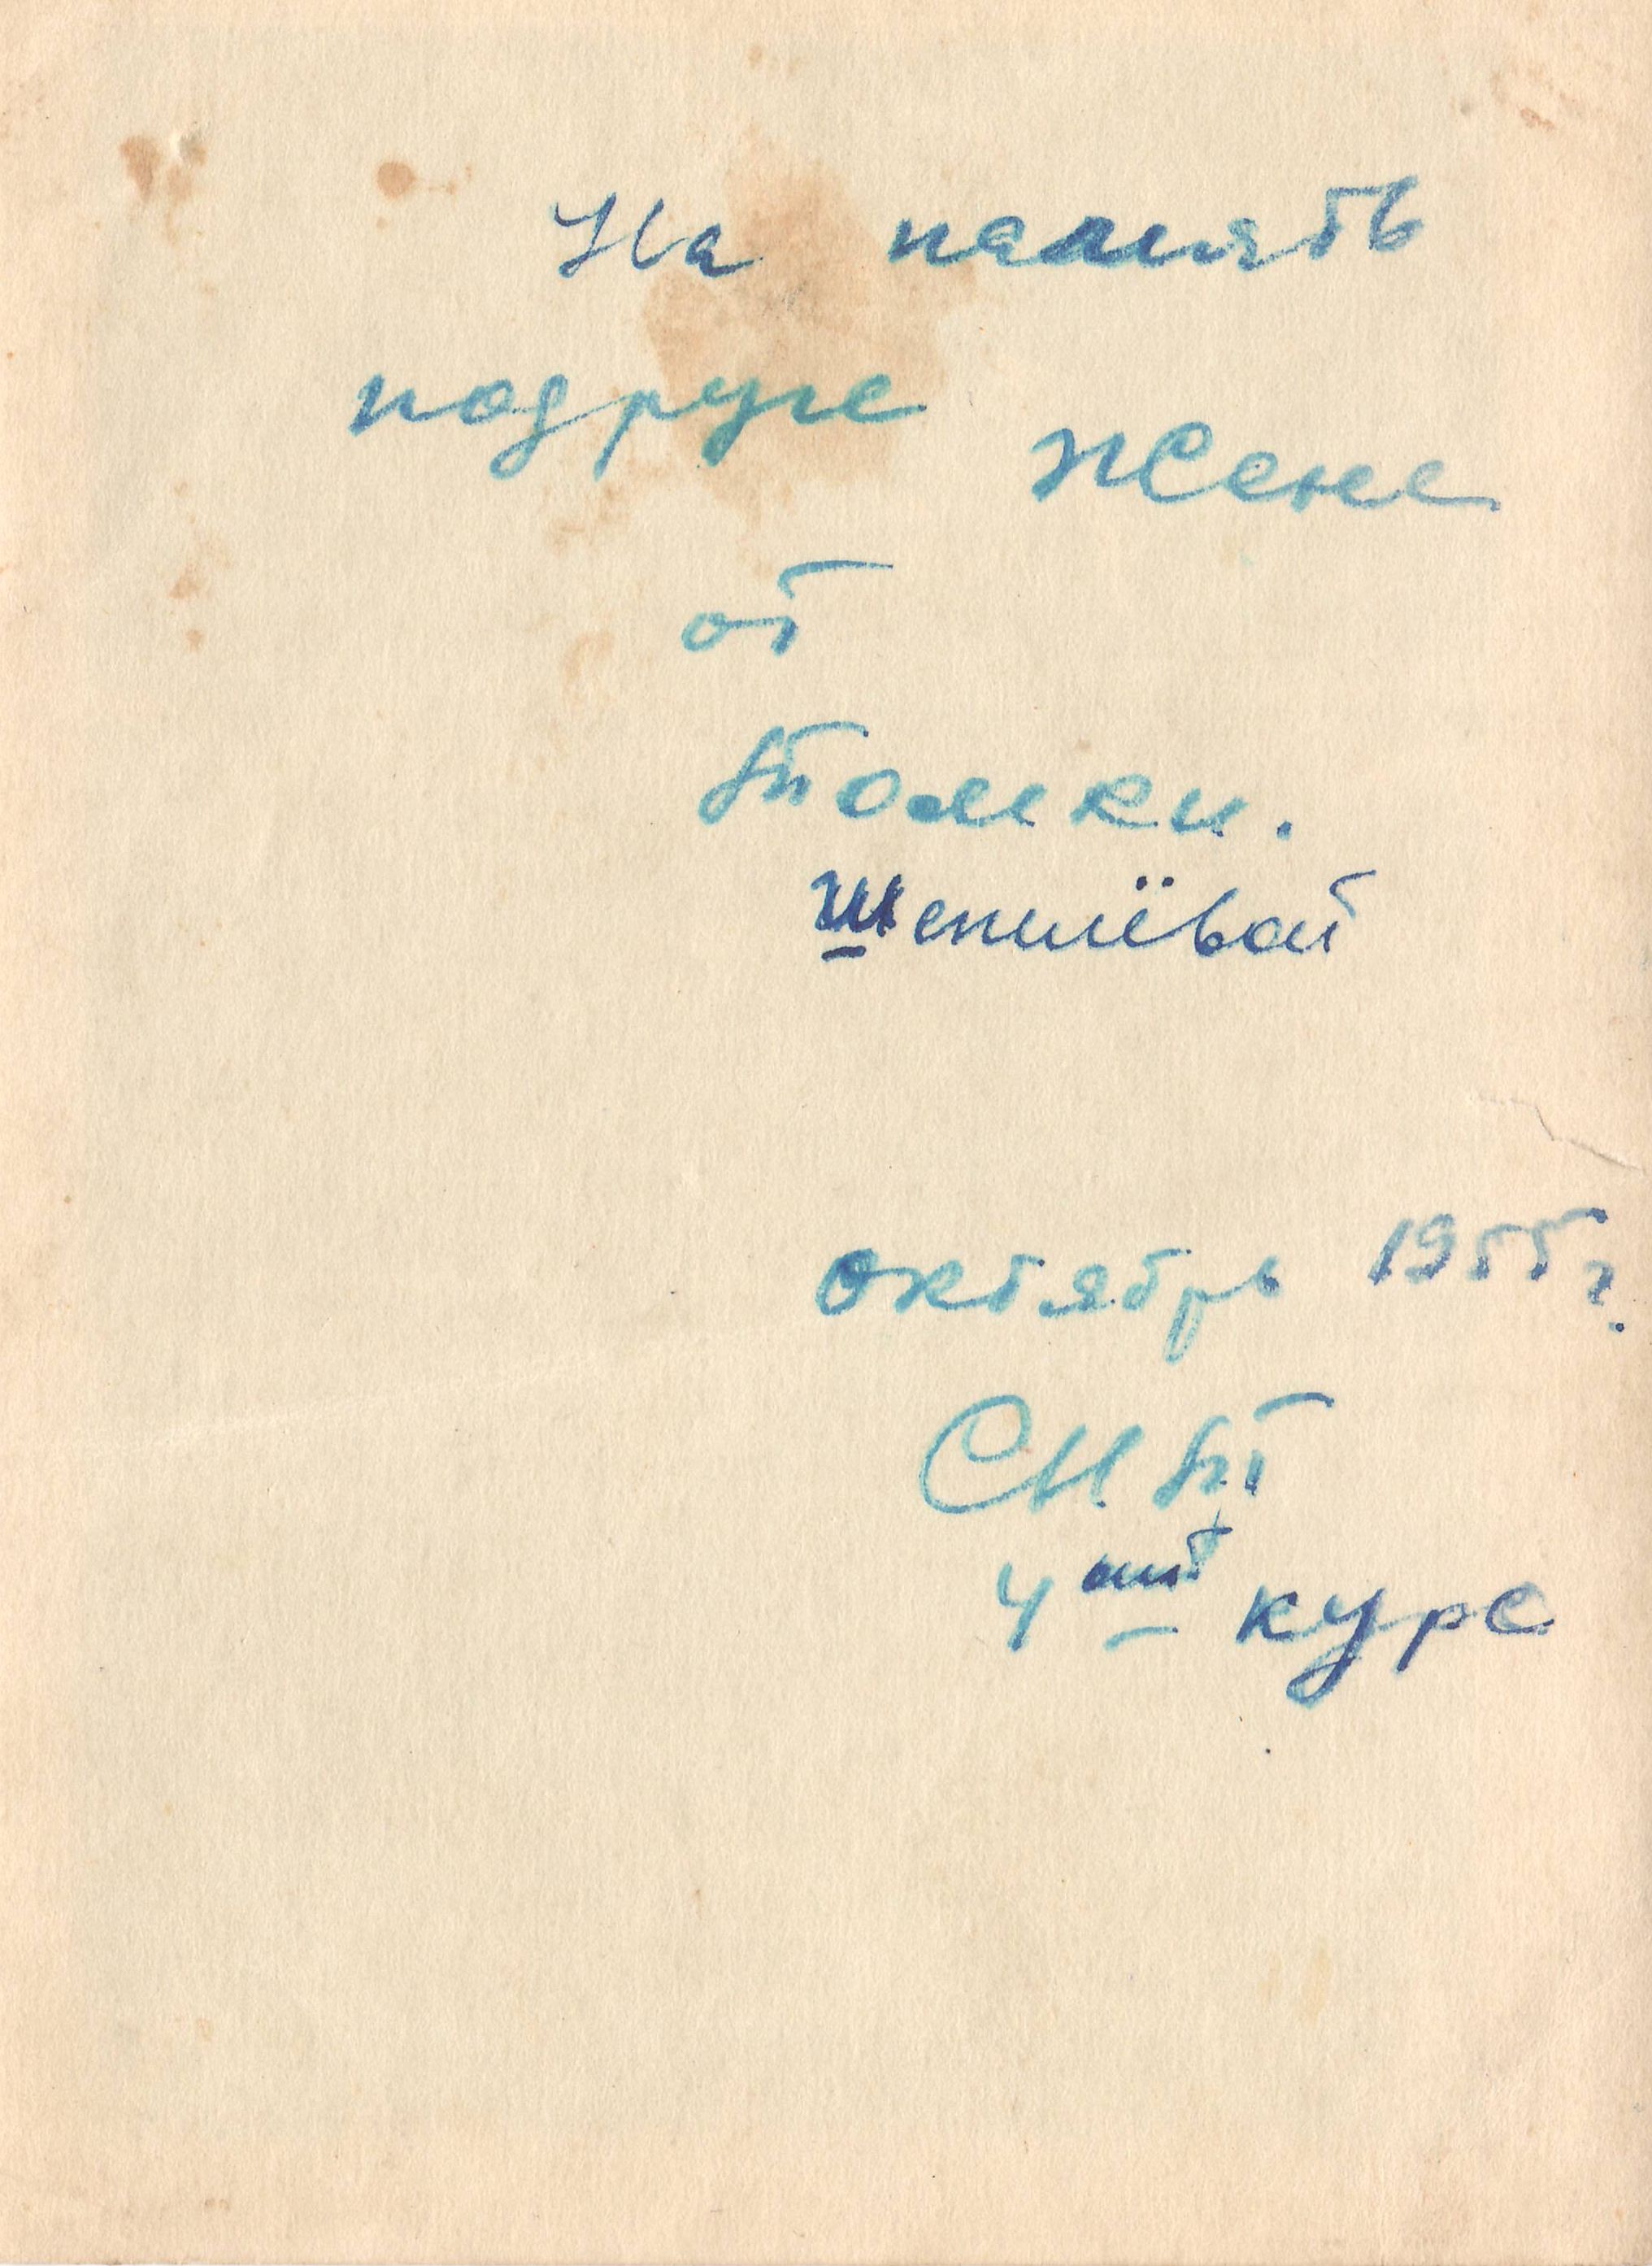 На память
подруге Жене
от
Томки.
Шепилёвой
октябрь 1955 г.
4ый курс